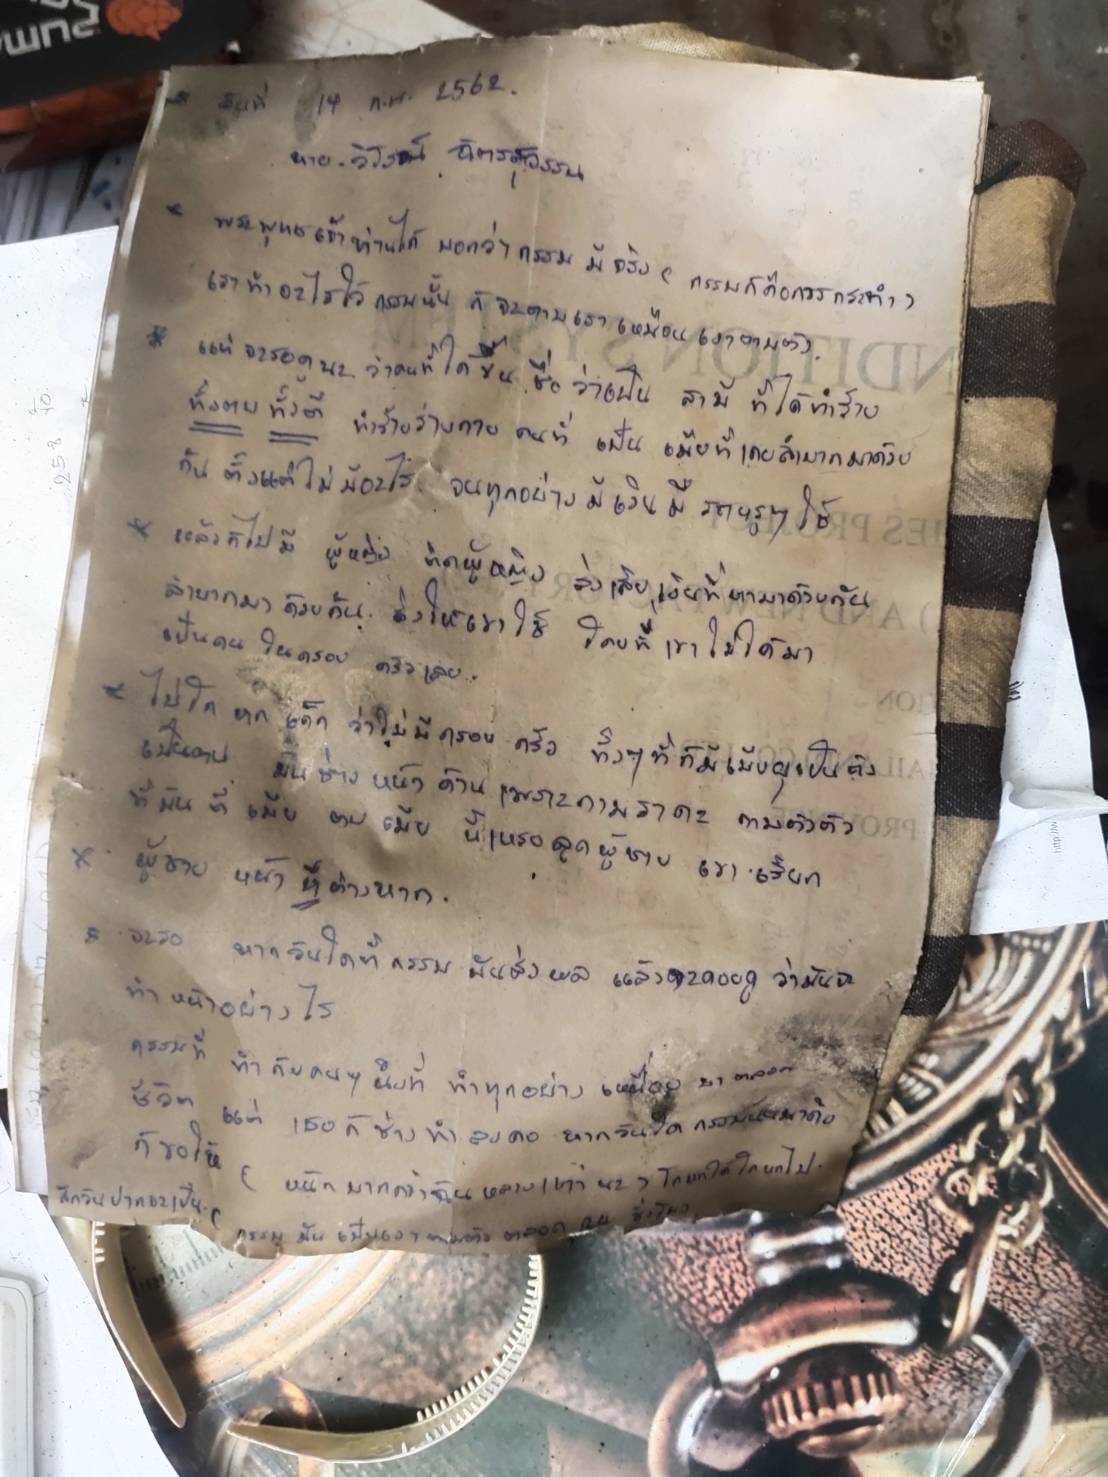 * วันที่ 14 ก.พ. 2562.
นาย.วิโรจน์ จิตรสุวรรณ
* พระพุทธเจ้าท่านได้ บอกว่ากรรม มีจริง ( กรรมก็คือการกระทำ )
เราทำอะไรไว้ กรรมนั้น ก็จะตามเรา เหมือนเงาตามตัว.
* แต่จะรอดูนะ ว่าคนที่ได้ขึ้น ชื่อว่าเป็น สามี ที่ได้ทำร้าย
ทั้งตบ ทั้งตี ทำร้ายร่างกาย คนที่ เป็น เมียที่เคยลำบากมาด้วย
กัน ตั้งแต่ไม่มีอะไร จนทุกอย่าง มีเงินมี รถหรูๆ ใช้
* แล้วก็ไปมี ผู้หญิง ติดผู้หญิง ส่งเสีย เงินที่หามาด้วยกัน
ลำบากมาด้วยกัน. ส่งให้เขาใช้ โดยที่เขาไม่ได้มา
เป็นคน ในครอบ ครัวเลย.
* ไปโกหกเด็ก ว่าไม่มีครอบ ครัว ทั้งๆที่ก็มีเมียอยู่เป็นตัว
เป็นตน มันช่างหน้าด้าน เพราะกามราคะ ตามตัวตัว
ที่มัน ตี เมีย ตบ เมีย นี่เหรอลูกผู้ชาย เขา เรียก
* ผู้ชาย หน้า ตัวต่างหาก.
* จะรอ หากวันใดที่ กรรม มันส่งผล แล้วจะคอยดู ว่ามันจะ
ทำหน้าอย่างไร
กรรมที่ ทำกับคนๆนึงที่ ทำทุกอย่าง เหนื่อย มาตลอด
ชีวิต แต่ เธอก็ช่างทำลงคอ หากวันใด กรรมมัน
ก็ขอให้ ( หนักมากกว่าฉันหลายเท่า นะ ) โกหกได้โกหกไป.
สักวัน
กรรม มัน เป็นเงาตามตัว ตลอด
NDITION SYSTEM
IES PROJECT
) AND NEW FACTORY
PUMA